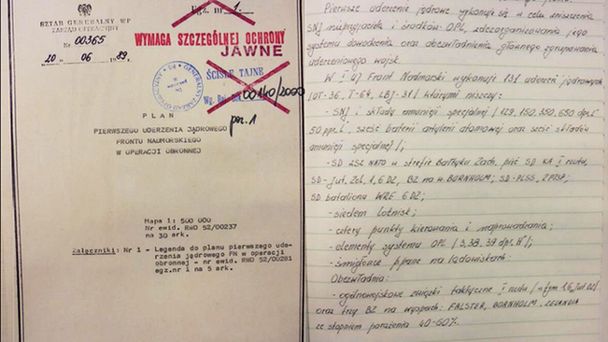 SZTAB GENERALNY WP
ZARZĄD OPERACYJNY
Nr 00365
20 06 1989
Egz. nr 1.
WYMAGA SZCZEGÓLNEJ OCHRONY
JAWNE
ŚCIŚLE TAJNE
00140/2000
poz. 1
PLAN
PIERWSZEGO UDERZENIA JĄDROWEGO
FRONTU NADMORSKIEGO
W OPERACJI OBRONNEJ
Mapa 1: 500 000
Nr ewid. RWD 52/00237
na 30 ark.
Załączniki: Nr 1 - Legenda do planu pierwszego ude-
rzenia jądrowego FN w operacji
obronnej - nr ewid. RWD 52/00281
egz.nr 1 na 5 ark.
Pierwsze uderzenie jądrowe wykonuje się w celu zniszczenia
SNJ nieprzyjaciela i środków OPL, zdezorganizowania jego
systemu dowodzenia oraz obezwładnienia głównego zgrupowania
uderzeniowego wojsk.
W I uj Front Nadmorski wykonuje 131 uderzeń jądrowych
/OT-36, T-64, LBJ-31/ którymi niszczy:
- SNJ i składy amunicji specjalnej / 129, 150, 350, 650 dpr.
50 ppr. /, sześć baterii artylerii atomowej oraz sześć składów
amunicji specjalnej /;
- SD ZSZ NATO w strefie Bałtyku Zach. pięć SD KA i
SD- Jut. Zel. 1, 6 DZ, BZ na w. BORNHOLM; SD-
SD bataliona WRE 6 DZ;
- siedem lotnisk;
- cztery punkty kierowania i naprowadzania;
- elementy systemu OPL / 3, 38, 39 dpr. /;
- śmigłowce ppanc na lądowiskach.
Obezwładnia:
- ogólnowojskowe związki taktyczne
oraz trzy BZ na wyspach: FALSTER, BORNHOLM, ZELANDIA
ze stopniem porażenia 40-60%.